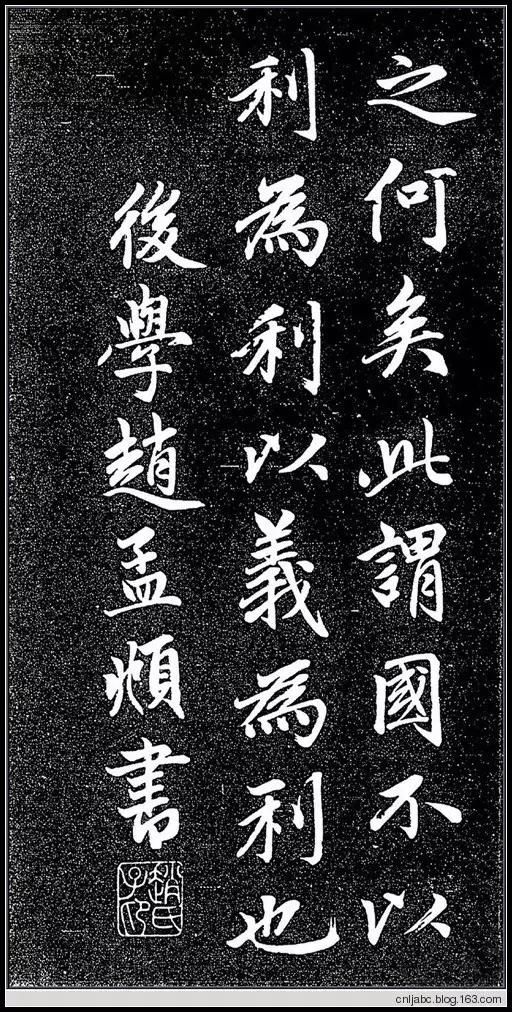 之何矣此謂國不以
利為利以義為利也
後學趙孟頫書
趙氏子昂
cnljabc.blog.163.com